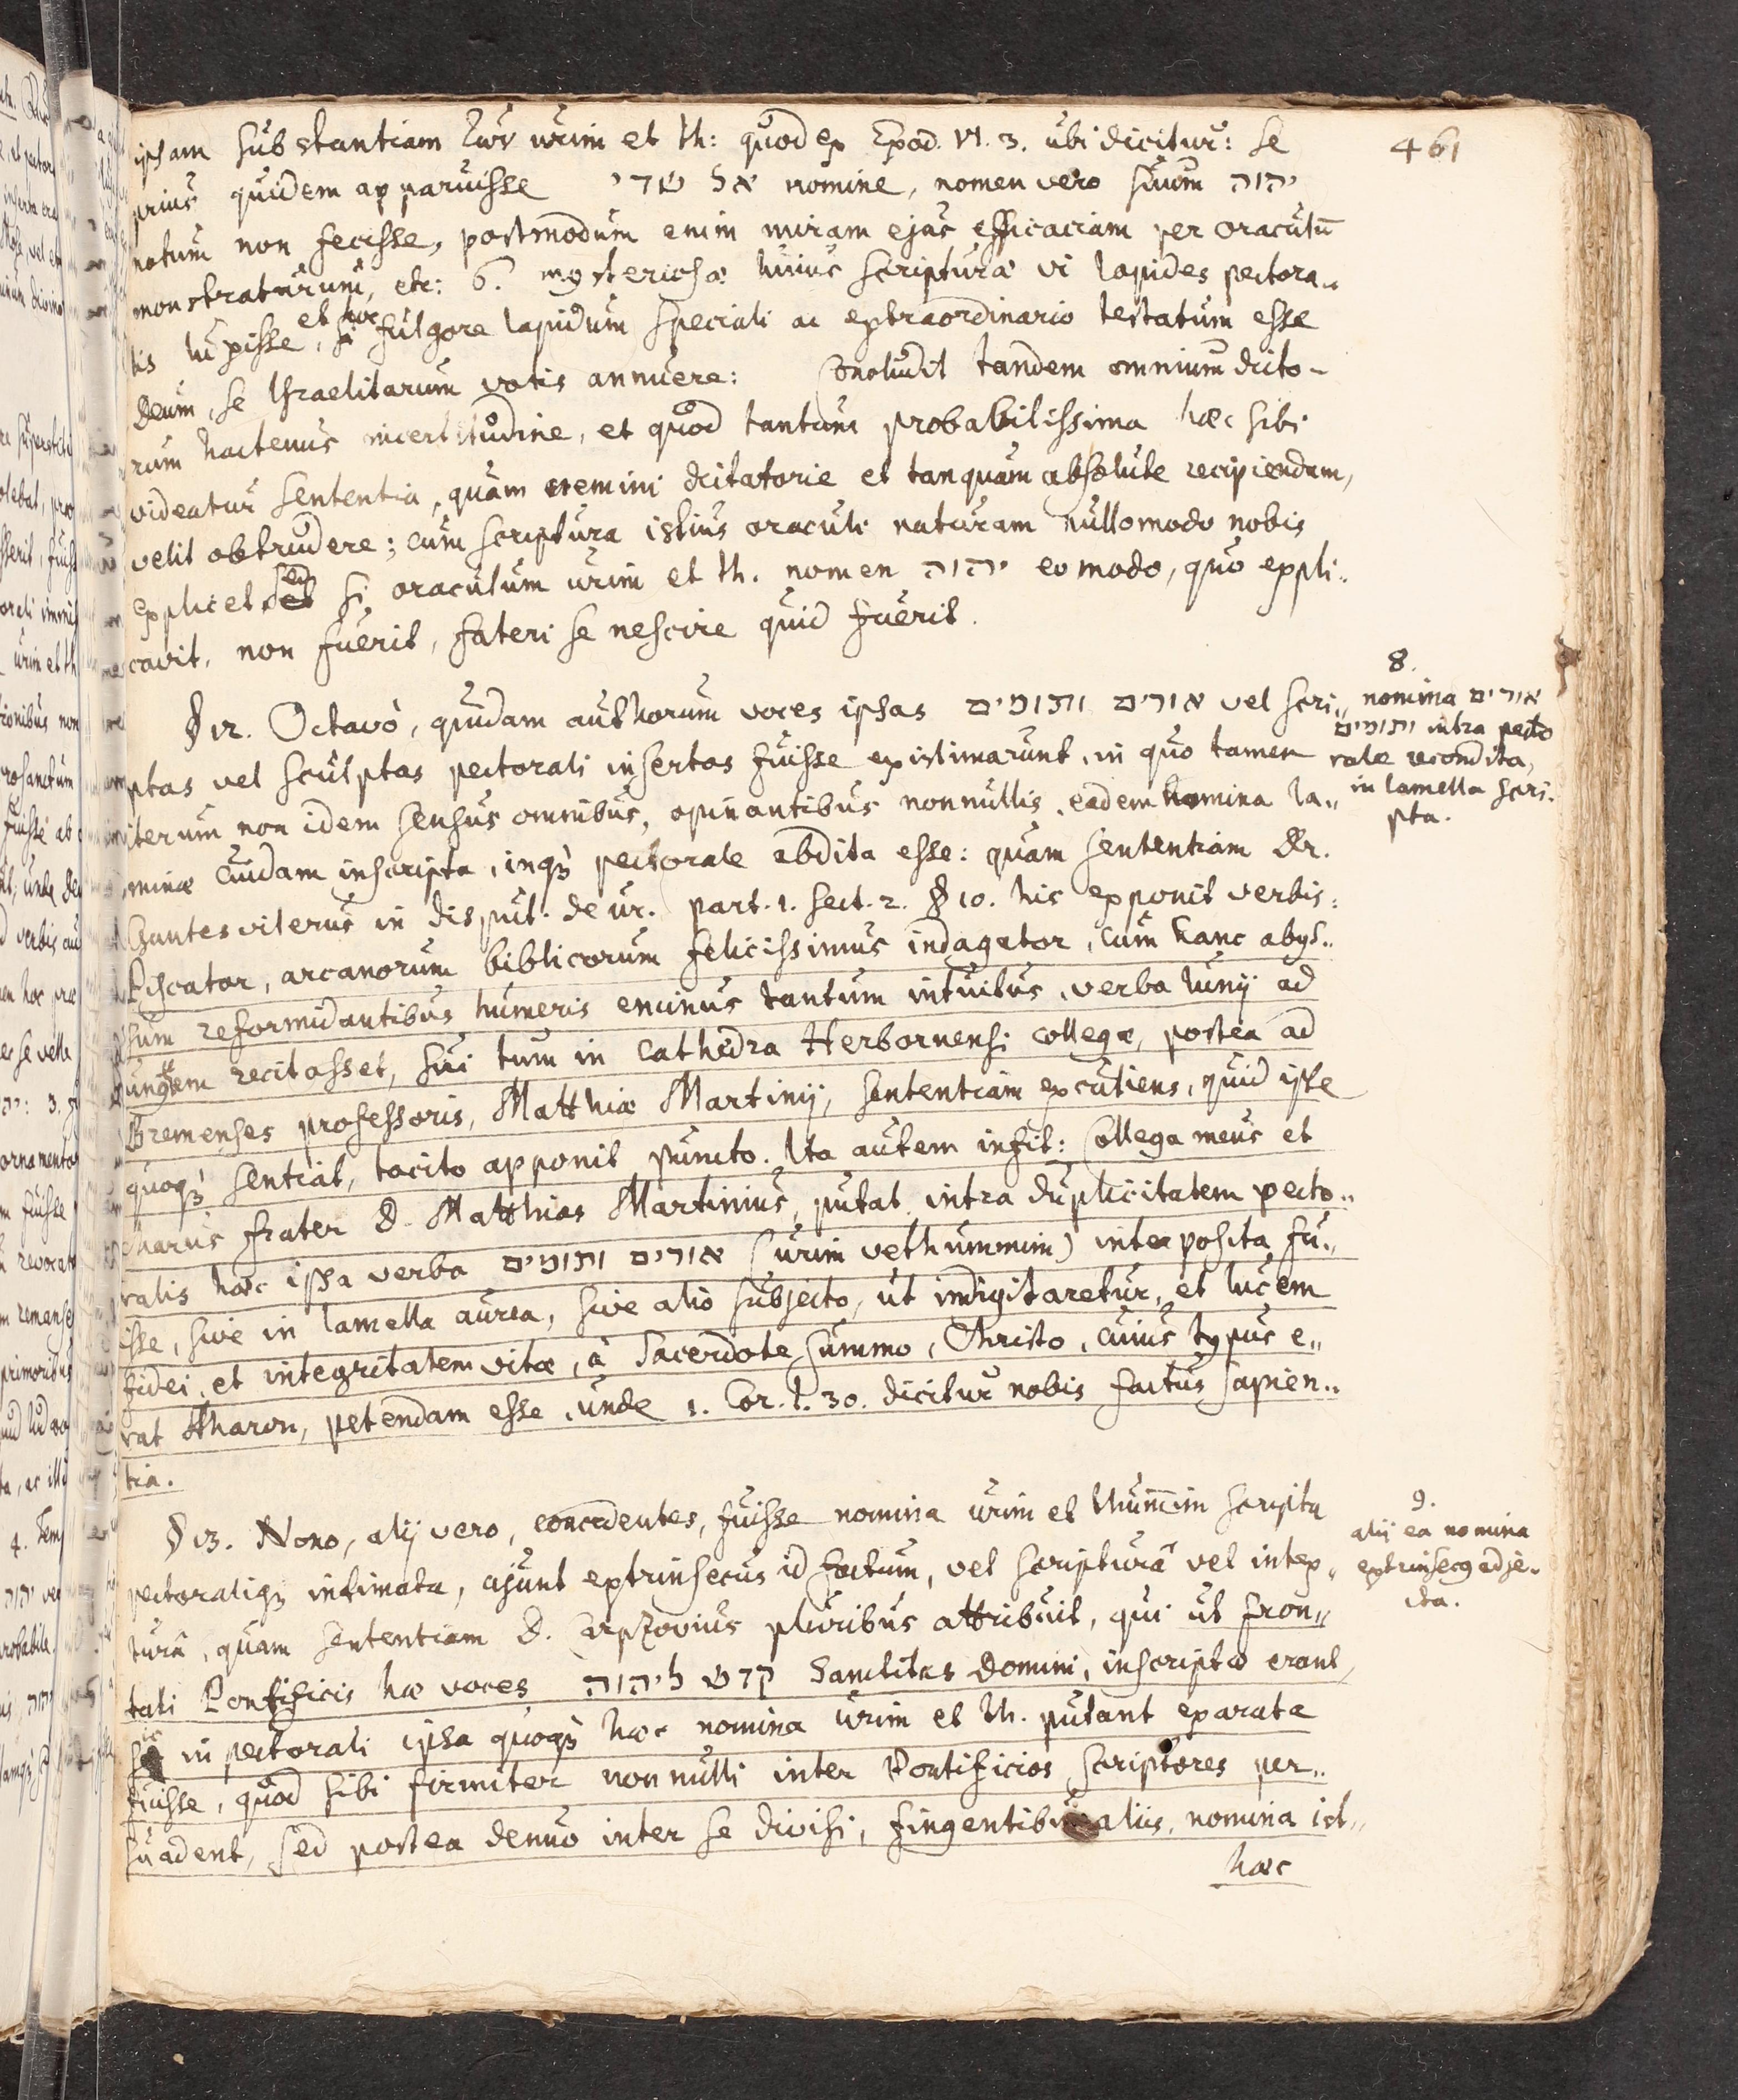 461
ipsam substantiam των urim et th: quod ex Exod. VI. 3. ubi dicitur: se
prius quidem apparuisse אל שדי nomine, nomen vero suum יהוה
notum non fecisse, postmodum enim miram ejus efficaciam per oraculū
monstraturum, etc: 6. mysteriosæ huius scripturæ vi lapides pectora„
lis luxisse, et hoc fulgore lapidum speciali ac extraordinario testatum esse
Deum, se Israelitarum votis annuere: Concludit tandem omnium dicto-
rum hactenus incertitudine, et quod tantum probabilissima hæc sibi
videatur sententia, quam nemini dictatorie et tanquam absolute recipiendam,
velit obtrudere; cum scriptura istius oraculi naturam nullo modo nobis
explicet, sed si oraculum urim et th. nomen יהוה eo modo, quo expli„
cavit, non fuerit, fateri se nescire quid fuerit.
8.
nomina אורים
ותומים intra pecto
rale recondita,
in lamella scri.
pta.
§ 12. Octavò, quidam authorum voces ipsas אורים ותומים vel scri„
ptas vel sculptas pectorali insertas fuisse existimarunt, in quo tamen
iterum non idem sensus omnibus, opinantibus nonnullis, eadem nomina la„
minæ cuidam inscripta, inqȝ pectorale abdita esse: quam sententiam Dr.
Chantesviterus in disput. de ur. part. 1. sect. 2. § 10. his exponit verbis:
Piscator, arcanorum biblicorum felicissimus indagator, cum hanc abys„
sum reformidantibus humeris eminus tantum intuitus, verba Iunij ad
unguem recitasset, sui tum in Cathedra Herbornensi collegæ, postea ad
Bremenses professoris, Matthiæ Martinij, sententiam excutiens, quid ipse
quoqȝ sentiat, tacito apponit puncto. Ita autem infit: Collega meus et
charus frater D. Matthias Martinius, putat intra duplicitatem pecto„
ralis hæc ipsa verba אורים ותומים (urim vethummim) interposita fu„
isse, sive in lamella aurea, sive alio subjecto, ut indigitaretur, et lucem
fidei, et integritatem vitæ, à Sacerdote summo, Christo, cuius typus e„
rat Aharon, petendam esse, unde 1. Cor. 1. 30. dicitur nobis factus sapien„
tia.
9.
alij ea nomina
extrinsecȝ adje-
cta.
§ 13. Nono, alij vero, concedentes, fuisse nomina urim et thum̄im scripta
pectoraliqȝ intimata, ajunt extrinsecus id factum, vel scripturâ vel intex„
turâ, quam sententiam D. Carpzovius pluribus attribuit, qui ut fron„
tali Pontificis hæ voces קדש ליהוה Sanctitas Domini, inscriptæ erant,
sic in pectorali ipsa quoqȝ hæc nomina urim et th. putant exarata
fuisse, quod sibi firmiter nonnulli inter Pontificios scriptores per„
suadent, sed postea denuo inter se divisi, fingentibus aliis, nomina ist„
hæc